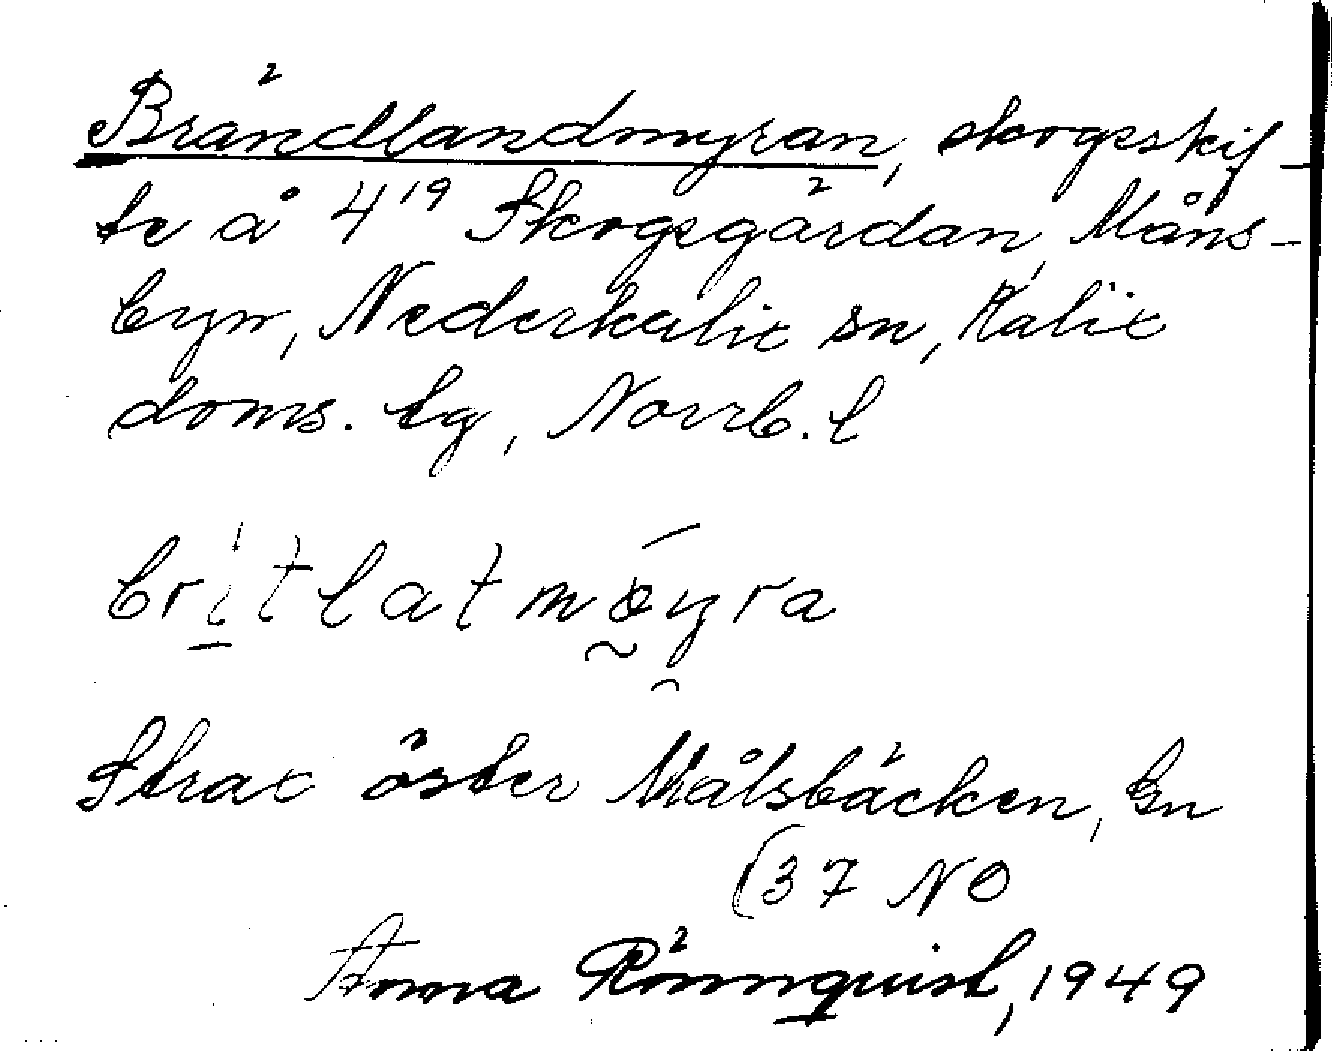 Brändlandmyran, skogsskif-
te å 4¹⁹ Skogsgärdan, Måns-
byn, Nederkalix sn, Kalix
doms. tg, Norrb. l
Strax öster Målsbäcken, Gn
(37 NO
Anna Rönnquist, 1949